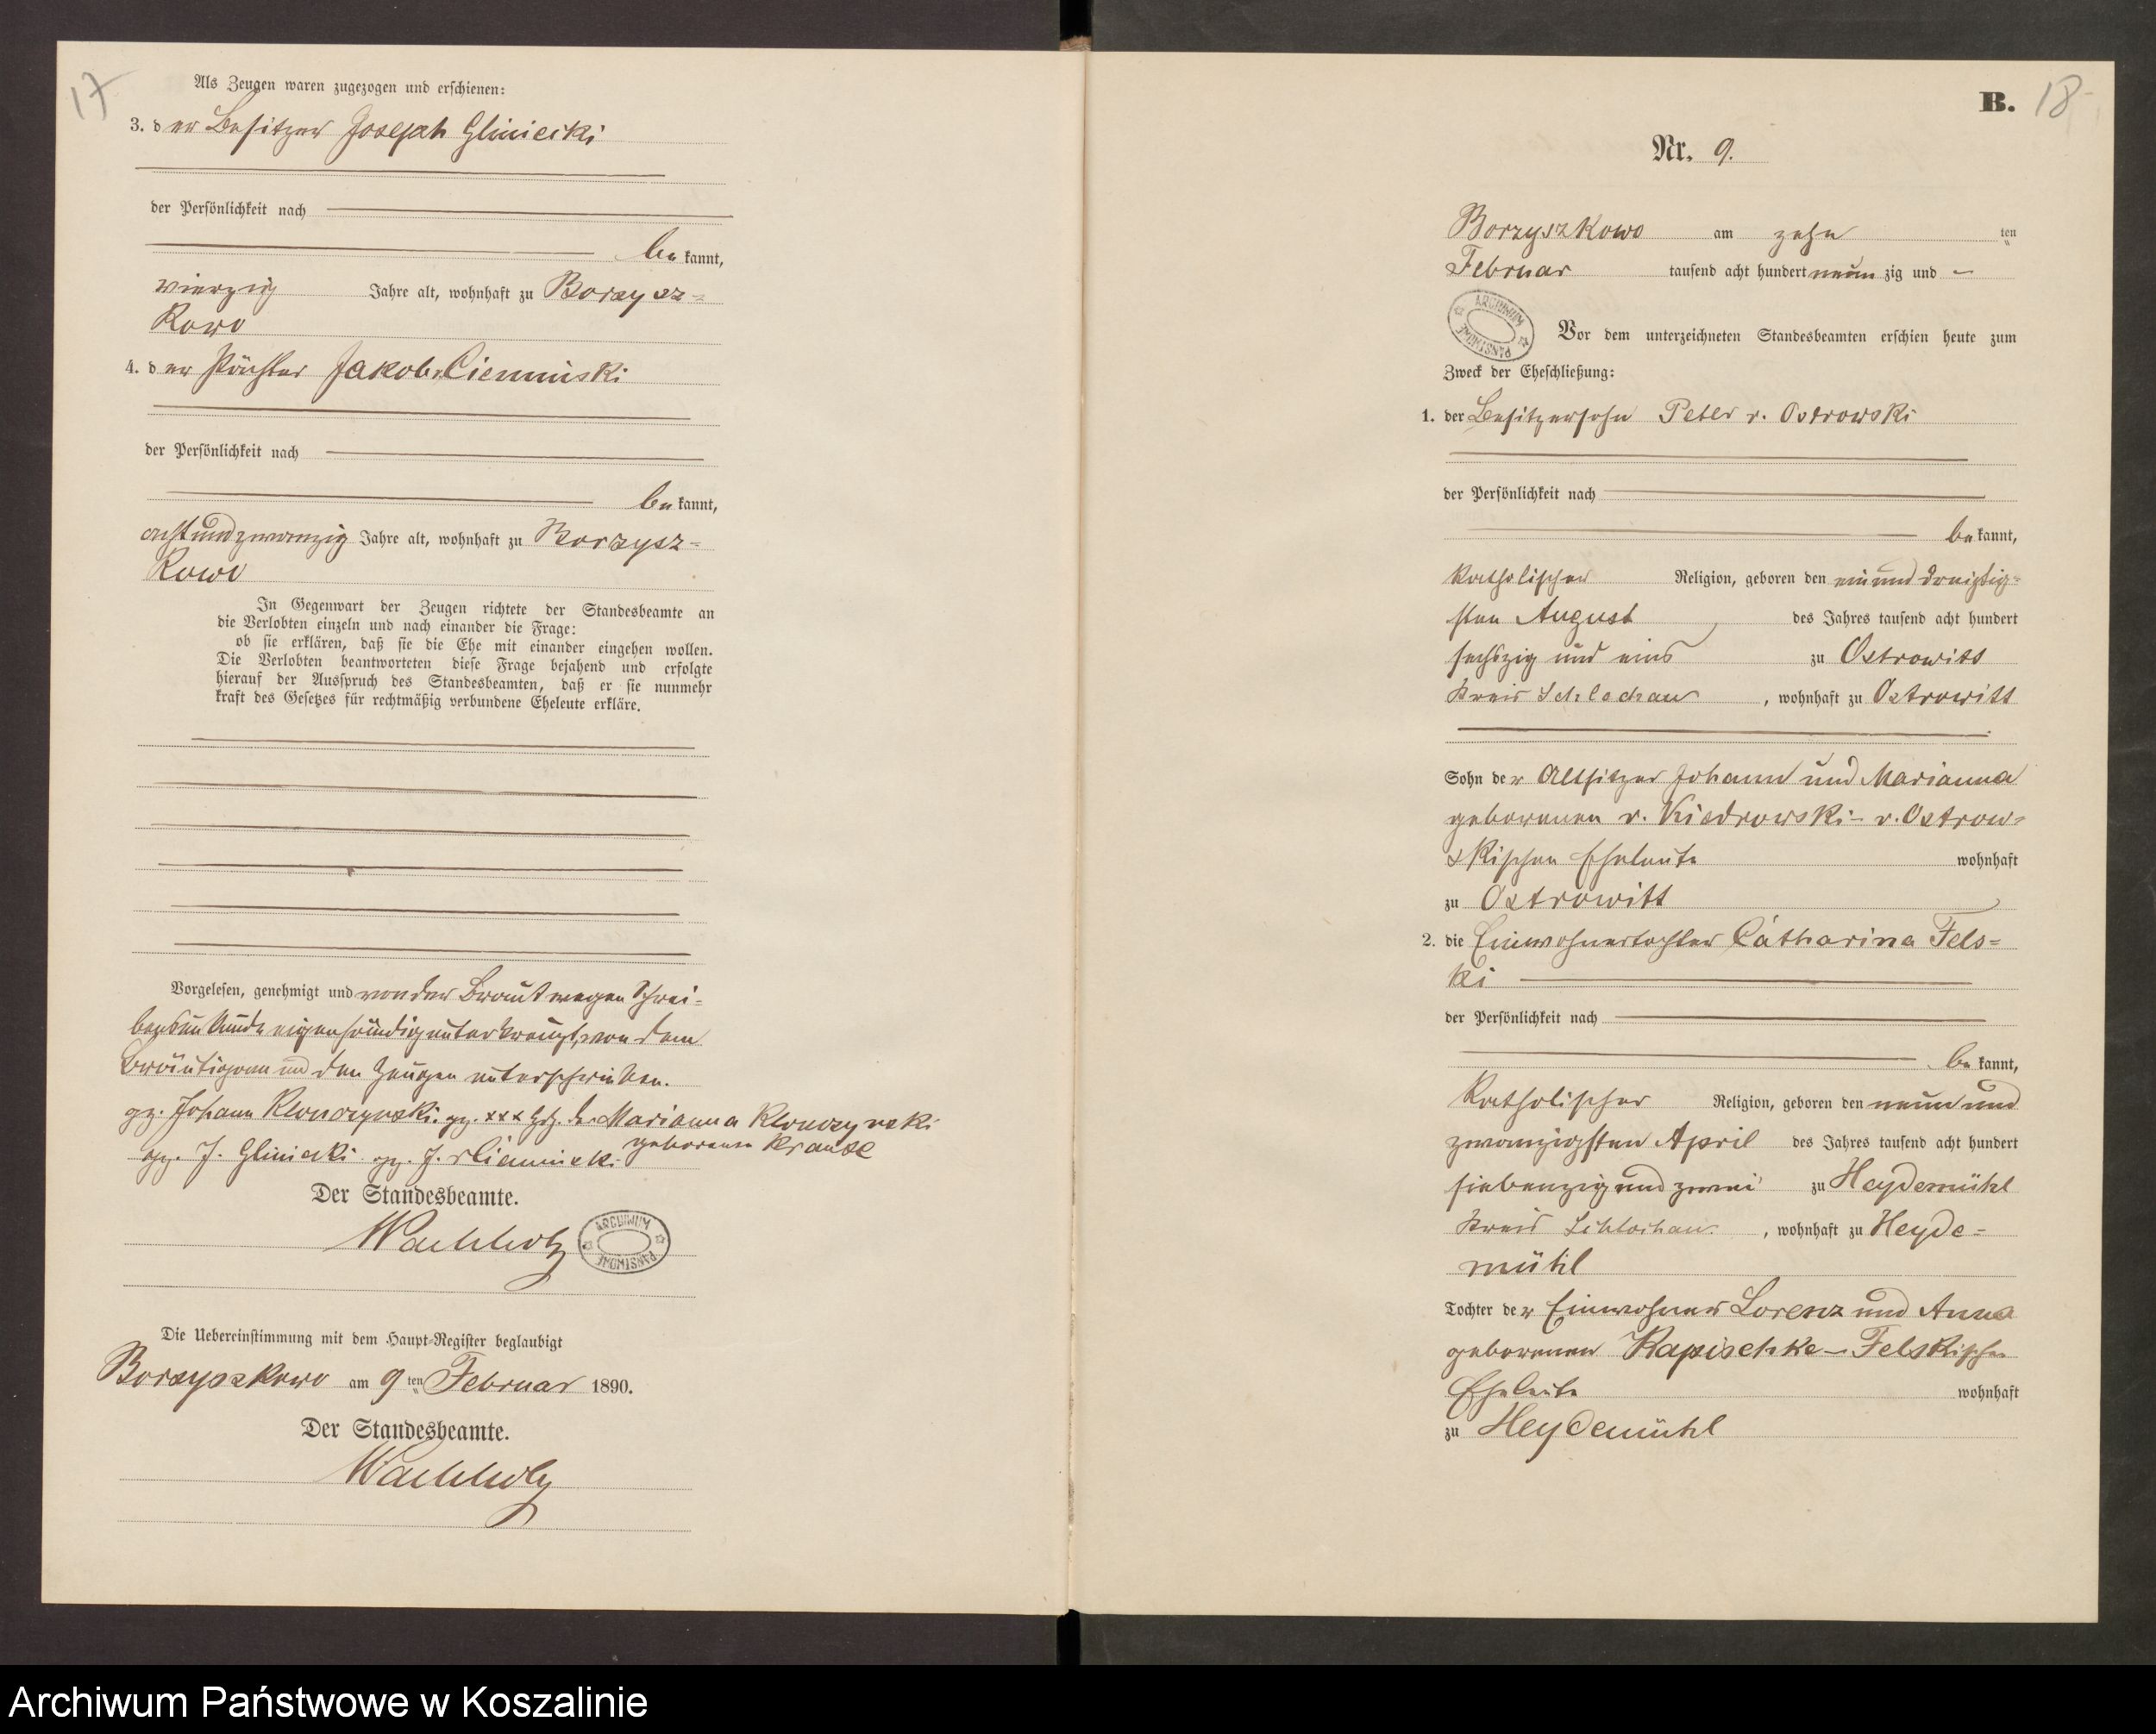 17
Als Zeugen waren zugezogen und erschienen:
3. der Besitzer Joseph Gliniecki
der Persönlichkeit nach
bekannt,
vierzig Jahre alt, wohnhaft zu Borzysz=
kowo
4. der Pächter Jakob v. Ciemniński
der Persönlichkeit nach
bekannt,
achtundzwanzig Jahre alt, wohnhaft zu Borzysz=
kowo
In Gegenwart der Zeugen richtete der Standesbeamte an
die Verlobten einzeln und nach einander die Frage:
ob sie erklären, daß sie die Ehe mit einander eingehen wollen.
Die Verlobten beantworteten diese Frage bejahend und erfolgte
hierauf der Ausspruch des Standesbeamten, daß er sie nunmehr
kraft des Gesetzes für rechtmäßig verbundene Eheleute erkläre.
Vorgelesen, genehmigt und von der Braut wegen Schrei=
bensunkunde eigenhändig unterkreuzt, von dem
Bräutigam und den Zeugen unterschrieben.
gz. Johann Klonczynski. gz. xxx Hdz. der Marianna Klonczynski
geborene Krause
gz. J. Gliniecki gz. J. v Ciemninski
Der Standesbeamte.
Wachholz
ARCHIWUM PAŃSTWOWE
Die Uebereinstimmung mit dem Haupt-Register beglaubigt
Borzyszkowo am 9 ten Februar 1890.
Der Standesbeamte.
Wachholz
B. 18
Nr. 9.
Borzyszkowo am zehn ten
Februar tausend acht hundert neunzig und -
ARCHIWUM PAŃSTWOWE
Vor dem unterzeichneten Standesbeamten erschien heute zum
Zweck der Eheschließung:
1. der Besitzersohn Peter v. Ostrowski
der Persönlichkeit nach
bekannt,
katholischer Religion, geboren den einunddreißig=
sten August des Jahres tausend acht hundert
sechszig und eins zu Ostrowitt
Kreis Schlochau, wohnhaft zu Ostrowitt
Sohn der Altsitzer Johann und Marianna
geborenen v. Kiedrowski- v. Ostrow=
skischen Eheleute wohnhaft
zu Ostrowitt
2. die Einwohnertochter Catharina Fels=
ki
der Persönlichkeit nach
bekannt,
katholischer Religion, geboren den neunund
zwanzigsten April des Jahres tausend acht hundert
siebenzig und zwei zu Heydemühl
Kreis Schlochau, wohnhaft zu Heyde=
mühl
Tochter der Einwohner Lorenz und Anna
geborenen Kapischke - Felskischen
Eheleute wohnhaft
zu Heydemühl
Archiwum Państwowe w Koszalinie